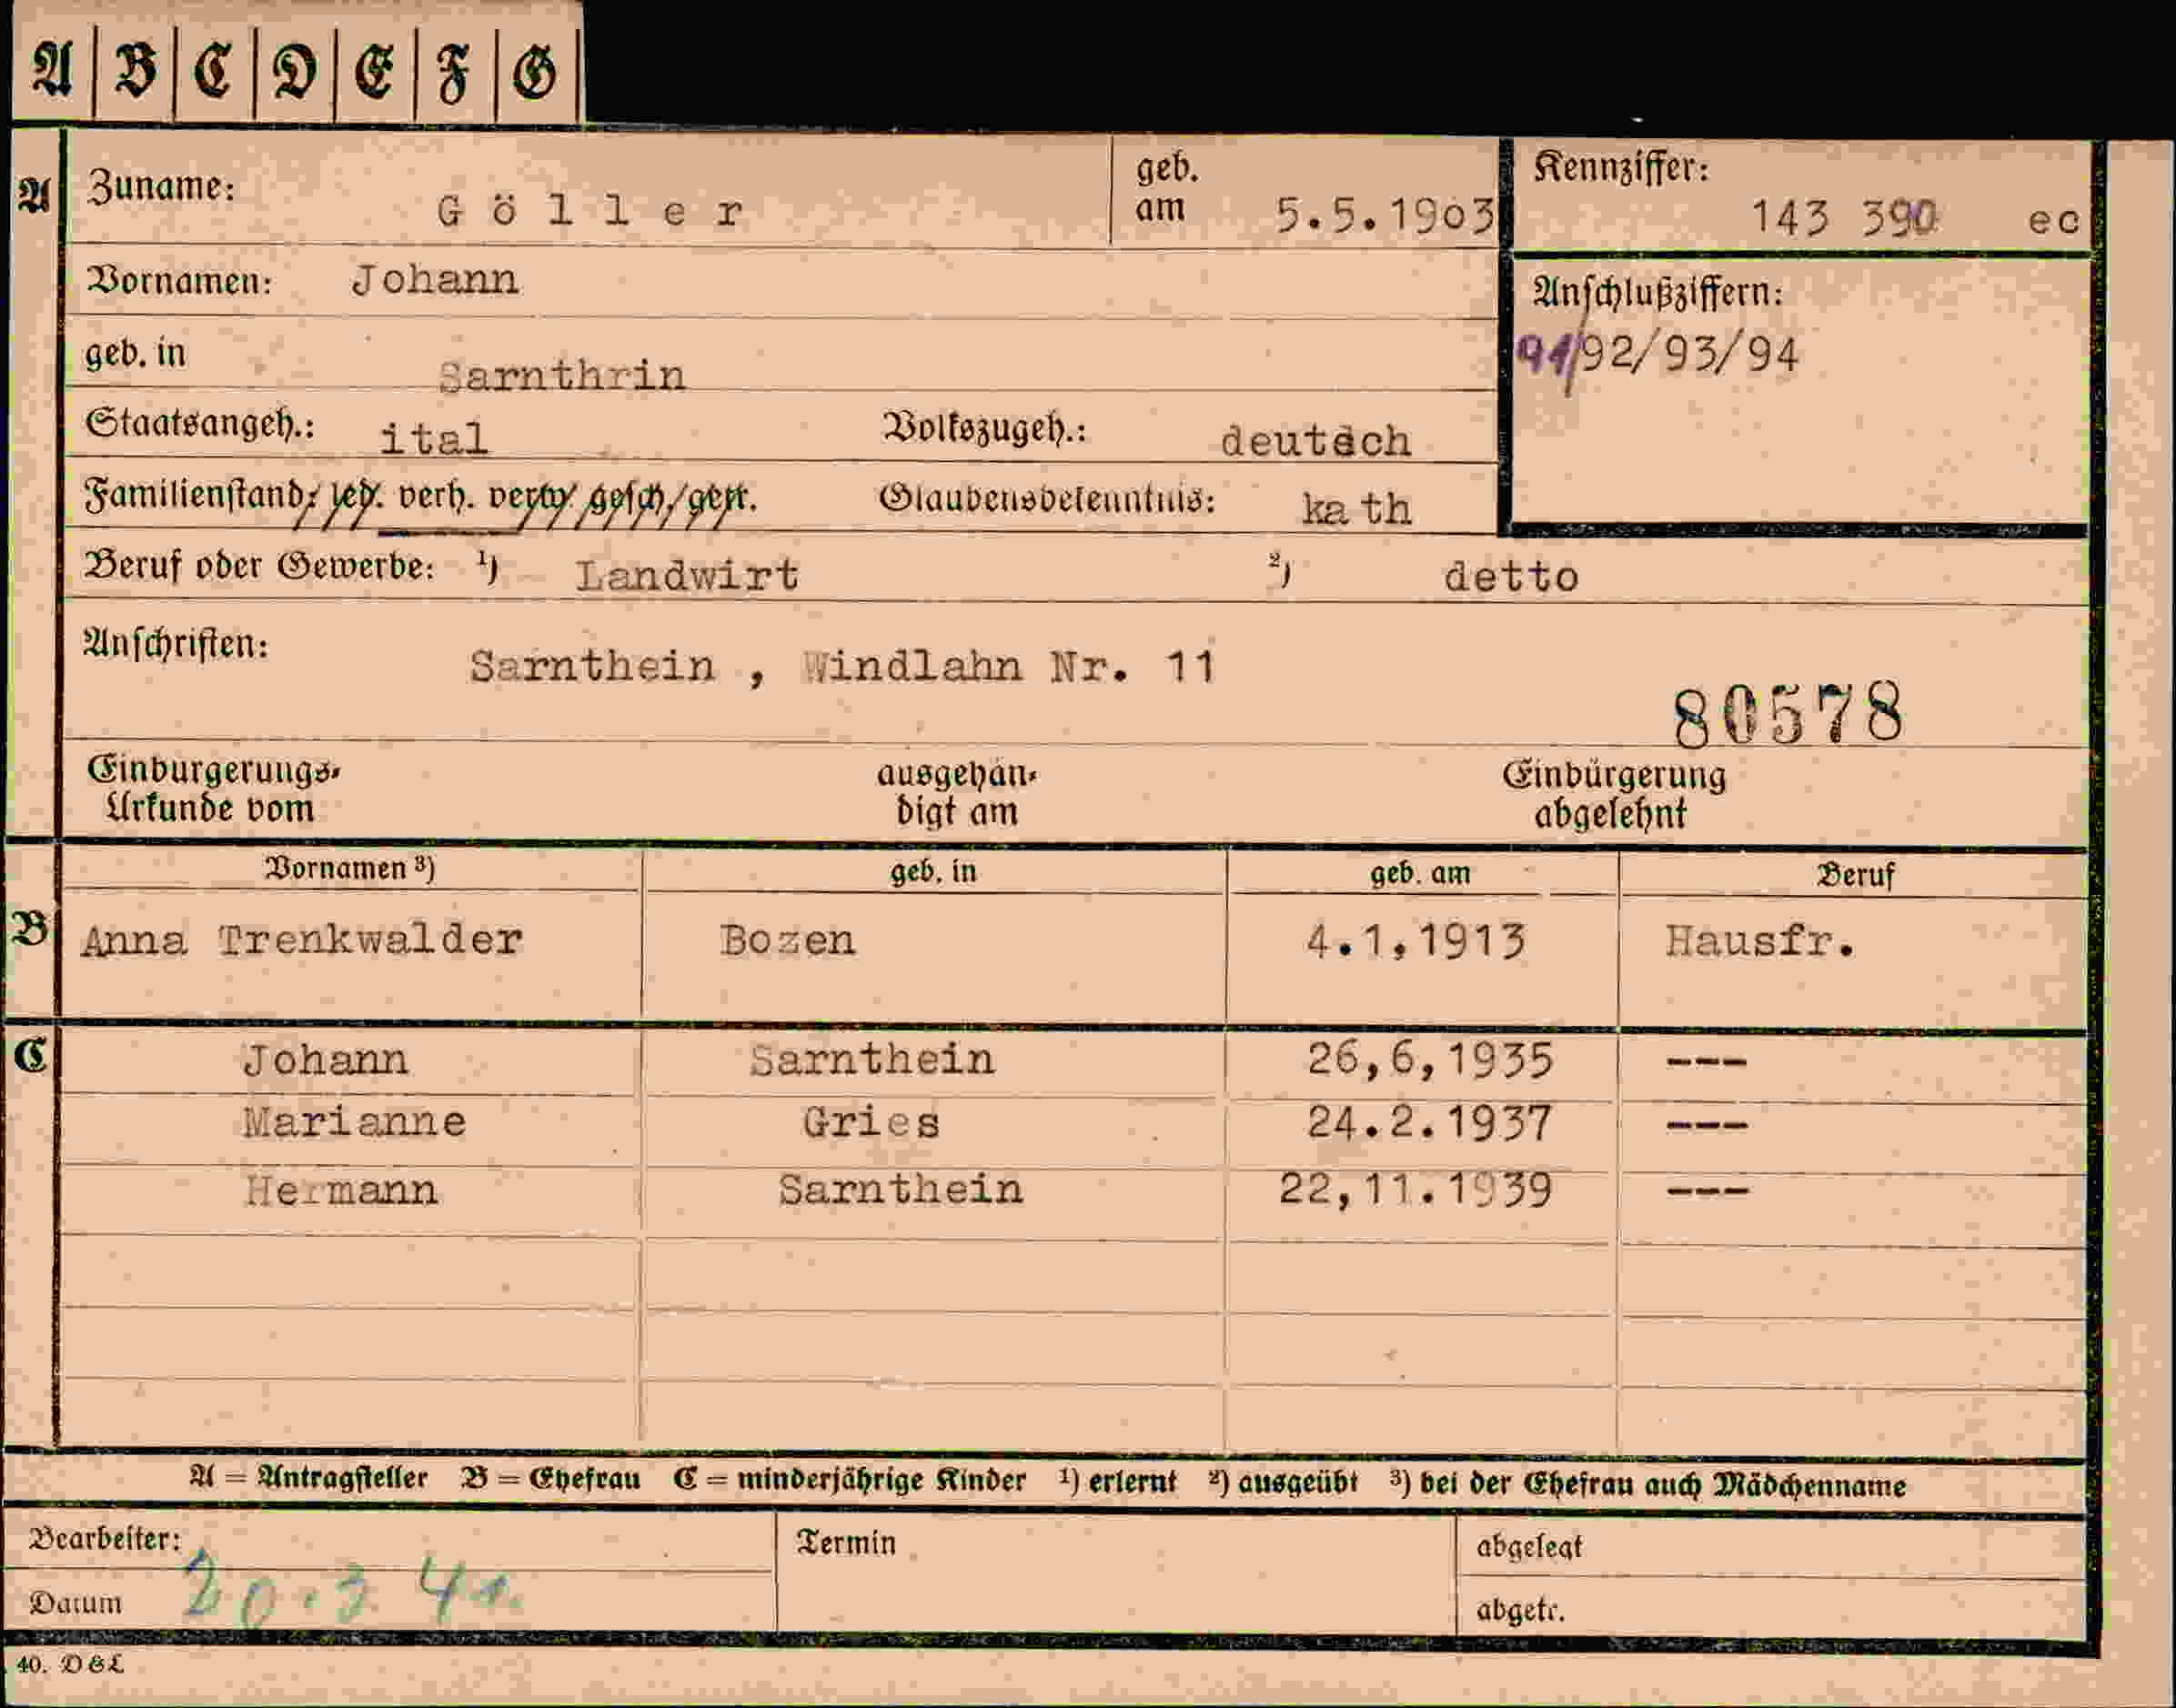 A B C D E F G
A Zuname: Göller geb. am 5.5.1903 Kennziffer: 143 390 ec
Vornamen: Johann Anschlußziffern:
geb. in Sarnthrin 91/92/93/94
Staatsangeh.: ital Volkszugeh.: deutsch
Familienstand: led. verh. verw. gesch. getr. Glaubensbekenntnis: kath
Beruf oder Gewerbe: ¹) Landwirt ²) detto
Anschriften: Sarnthein , Windlahn Nr. 11
80578
Einbürgerungs- ausgehän- Einbürgerung
Urkunde vom digt am abgelehnt
Vornamen ³) geb. in geb. am Beruf
B Anna Trenkwalder Bozen 4.1,1913 Hausfr.
C Johann Sarnthein 26,6,1935 ---
Marianne Gries 24.2.1937 ---
Hermann Sarnthein 22,11.1939 ---
A = Antragsteller B = Ehefrau C = minderjährige Kinder ¹) erlernt ²) ausgeübt ³) bei der Ehefrau auch Mädchenname
Bearbeiter: Termin abgelegt
Datum 20.3 41. abgetr.
40. DGL